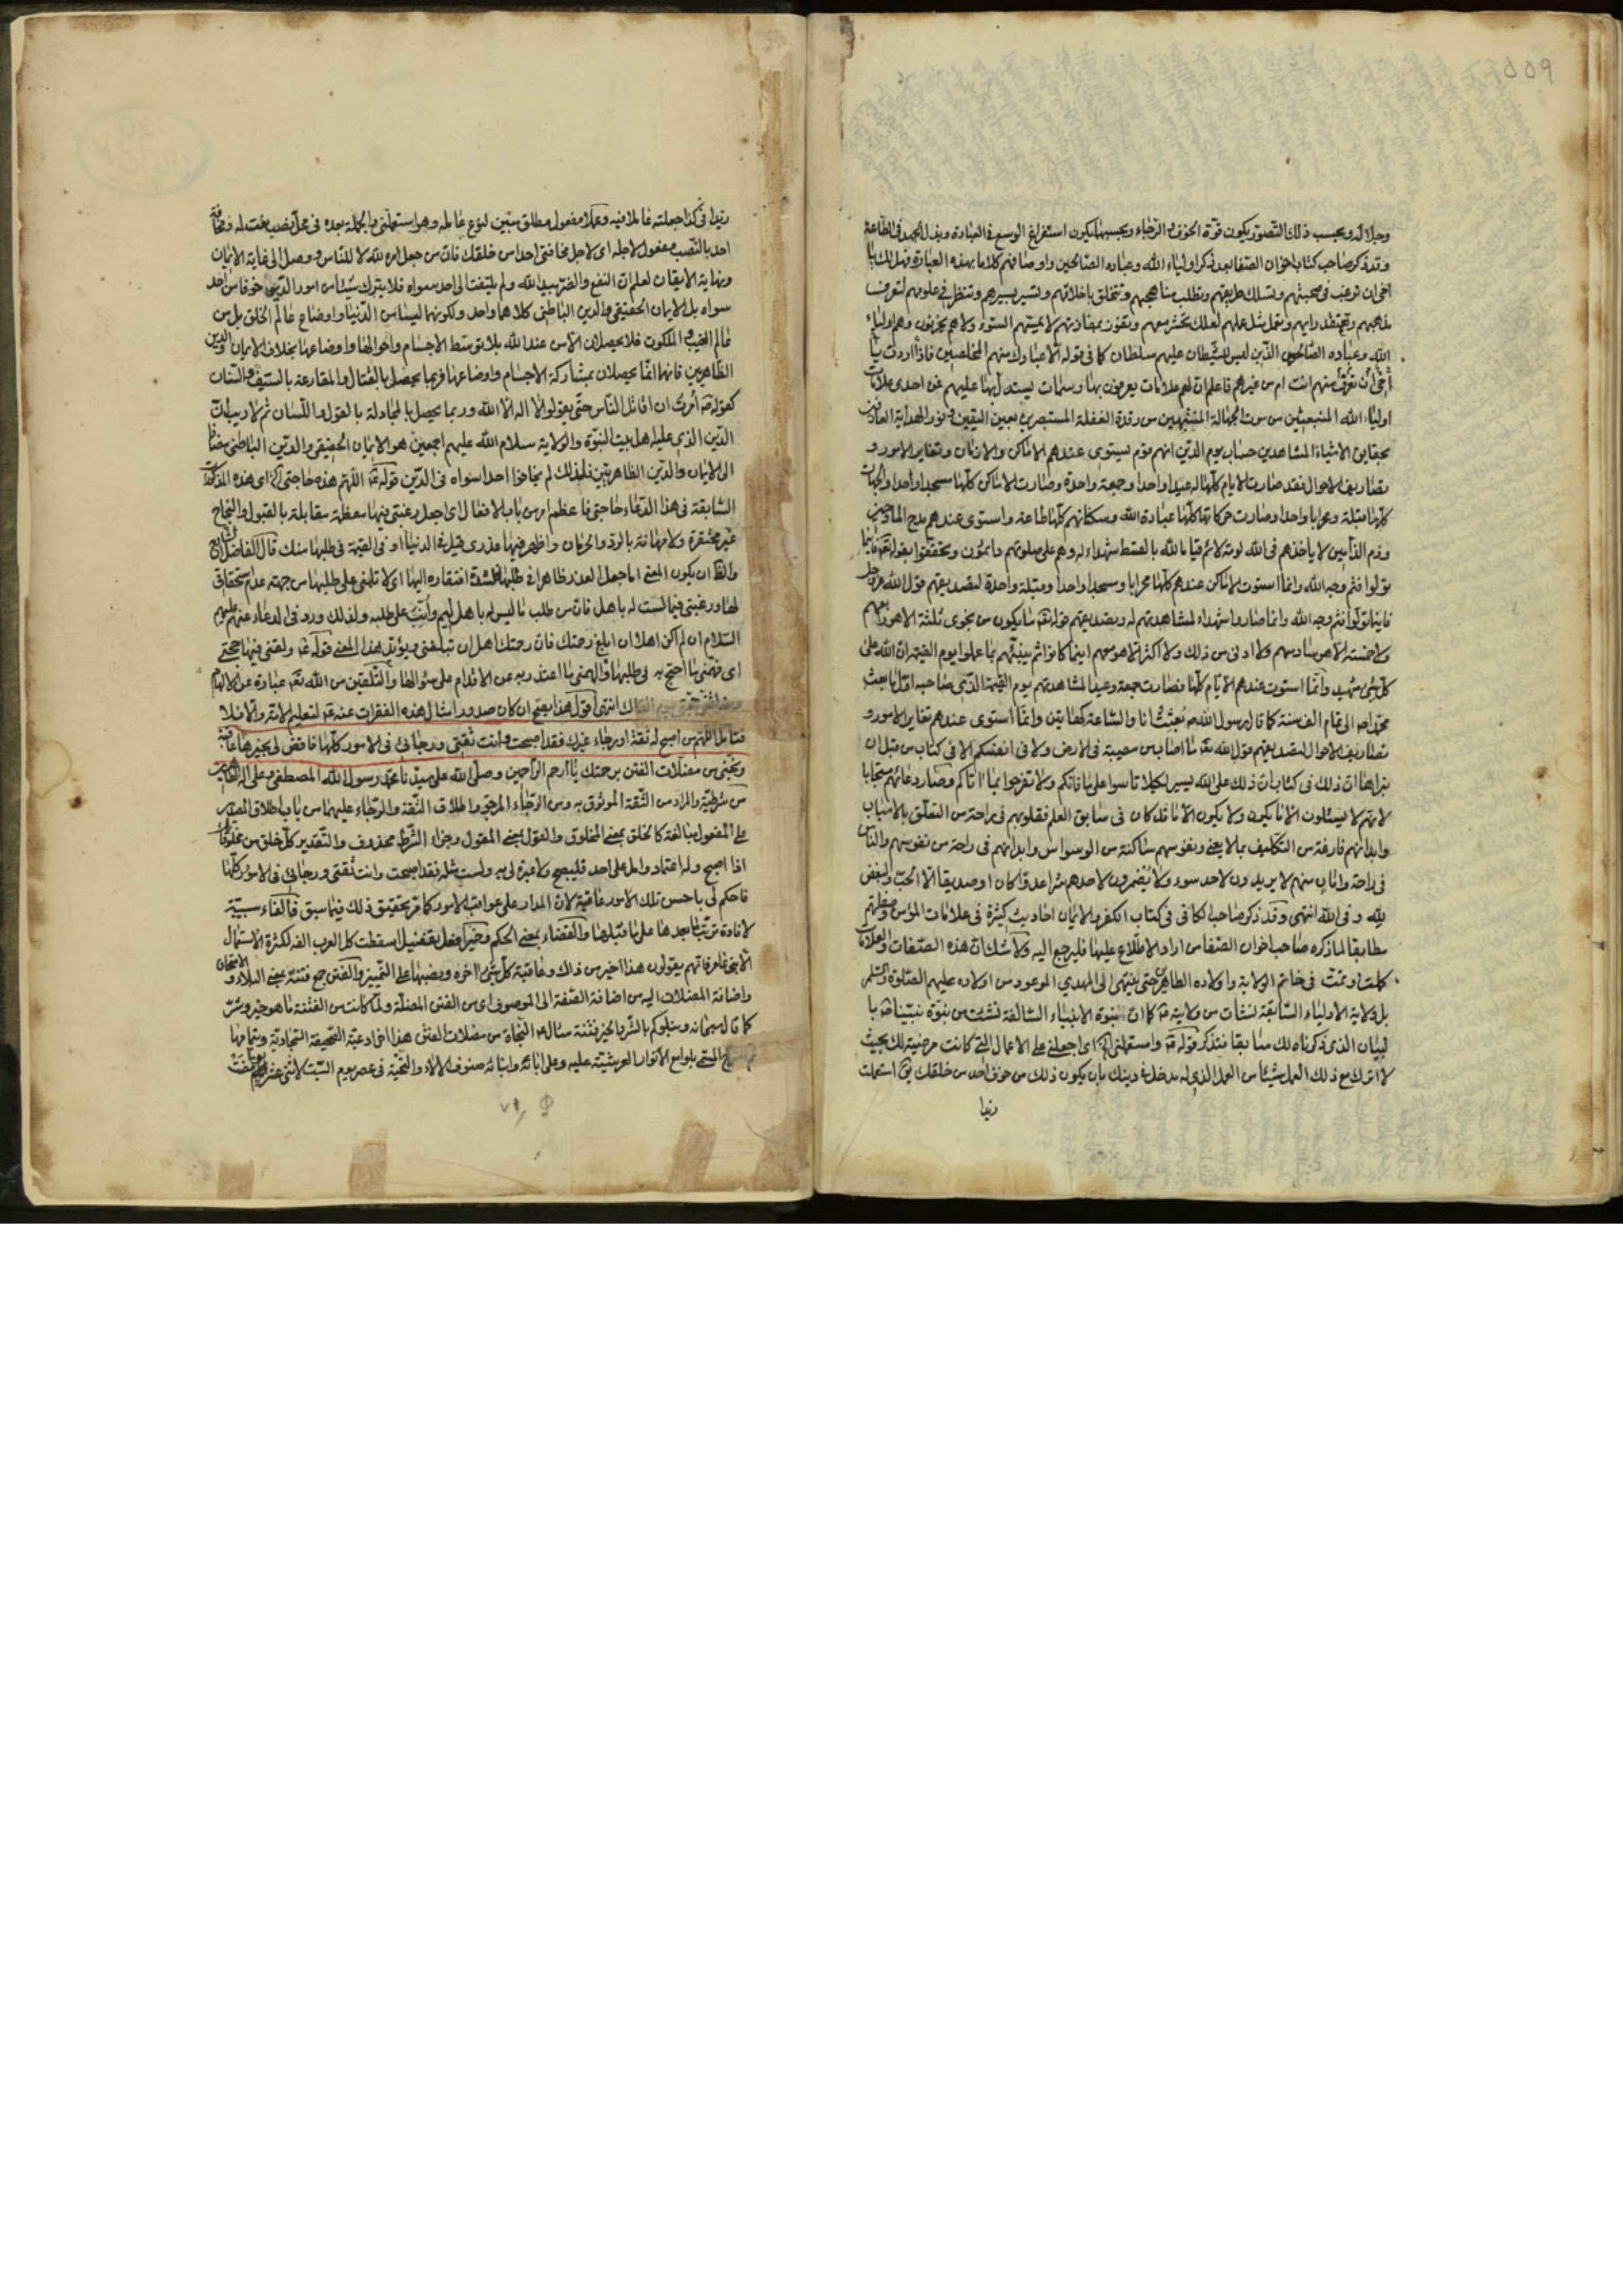 وجلاله وبحسب ذلك التصور يكون قوة الخوف والرجاء وبحسبهما يكون استفراغ الوسع في العبادة وبذل الجهد في الطاعة
وقد ذكر صاحب كتاب اخوان الصفا بعد ذكر اولياء الله وعباده الصالحين واوصافهم كلاما بهذه العبارة فهل لك يا
اخي ان ترغب في صحبتهم وتسلك طريقتهم وتطلب مناهجهم وتتخلق باخلاقهم وتسير بسيرهم وتنظر في علومهم لتعرف
مذهبهم وتعتقد رايهم وتعمل مثل عملهم لعلك تحشر معهم وتفوز بمفازتهم لا يمسهم السوء ولا هم يحزنون وهم اولياء
الله وعباده الصالحون الذين ليس للشيطان عليهم سلطان كما في قوله الا عبادك منهم المخلصين فاذا اردت يا
اخي ان تعرف منهم انت ام من غيرهم فاعلم ان لهم علامات يعرفون بها وسمات يستدل بها عليهم فمن احدى علامات
اولياء الله المنبعثين من موت الجهالة المنتبهين من رقدة الغفلة المستبصرين بعين اليقين ونور الهداية العارفين
بحقايق الاشياء المشاهدين حساب يوم الدين انهم قوم يستوي عندهم الاماكن والازمان وتغاير الامور و
تصاريف الاحوال فقد صارت الايام كلها له عيدا واحدا وجمعة واحدة وصارت الاماكن كلها مسجدا واحدا والجهات
كلها قبلة ومحرابا واحدا وصارت حركاتها كلها عبادة الله وسكناتهم كلها طاعة واستوى عندهم مدح المادحين
وذم الذامين لا ياخذهم في الله لومة لائم قياما لله بالقسط شهداء له وهم على صلوتهم دائمون وتحققوا بقوله تعالى فاينما
تولوا فثم وجه الله وانما استوت الاماكن عندهم كلها محرابا ومسجدا واحدا وقبلة واحدة لتصديقهم قول الله عز وجل
فاينما تولوا فثم وجه الله وانما صاروا شهداء لمشاهدتهم له وتصديقهم قوله تعالى ما يكون من نجوى ثلثة الا هو رابعهم
ولا خمسة الا هو سادسهم ولا ادنى من ذلك ولا اكثر الا هو معهم اينما كانوا ثم ينبئهم بما عملوا يوم القيمة ان الله على
كل شيء شهيد وانما استوت عندهم الايام كلها فصارت جمعة وعيدا لمشاهدتهم يوم القيمة الذي صاحبه اوله باعث
محمد ص الى تمام الف سنة كما قال رسول الله ص بعثت انا والساعة كهاتين وانما استوى عندهم تغاير الامور و
تصاريف الاحوال لتصديقهم قول الله تعالى ما اصاب من مصيبة في الارض ولا في انفسكم الا في كتاب من قبل ان
نبراها ان ذلك في كتاب ان ذلك على الله يسير لكيلا تاسوا على ما فاتكم ولا تفرحوا بما اتاكم وصار دعائهم مستجابا
لانهم لا يسئلون الا ما يكون ولا يكون الا ما قد كان في سابق العلم فقلوبهم في راحة من التعلق بالاسباب
وابدانهم فارغة من التكاليف بما لا يعني ونفوسهم ساكنة من الوسواس وابدانهم في راحة من نفوسهم والناس
في راحة وامان منهم لا يريدون لاحد سوء ولا يضمرون لاحدهم شرا عدوا كان او صديقا الا الحب والبغض
لله وفي الله انتهى وقد ذكر صاحب الكافي في كتاب الكفر والايمان احاديث كثيرة في علامات المؤمن وصفاتهم
مطابقا لما ذكره صاحب اخوان الصفا من اراد الاطلاع عليها فليرجع اليه ولا شك ان هذه الصفات والعلامات
كملت وتمت في خاتم الولاية واولاده الطاهرين حتى ينتهي الى المهدي الموعود من اولاده عليهم الصلوة والسلم
بل ولاية الاولياء السابقة نشات من ولايته كما ان نبوة الانبياء السالفة نشئت من نبوة نبينا ص با
لبيان الذي ذكرناه لك سابقا فتذكر قوله واستعملني اي اجعلني على الاعمال التي كانت مرضية لك بحيث
لا اترك مع ذلك العمل شيئا من العمل الذي له مدخل في دينك بان يكون ذلك من خوف احد من خلقك استعملت
زيدا
زيدا في كذا جعلته عاملا فيه وعملا مفعول مطلق مبين لنوع عامله وهو استعملني والجملة بعده في محل نصب نعت له ومخافة
احد بالنصب مفعول لاجله اي لاجل مخافتي احدا من خلقك فان من جعل امره لله لا للناس ووصل الى غاية الايمان
ونهاية الايقان لعلم ان النفع والضر بيد الله ولم يلتفت الى احد سواه فلا يترك شيئا من امور الدين خوفا من احد
سواه بل الايمان الحقيقي والدين الباطني كلاهما واحد ولكونهما ليسا من الدنيا واوضاع عالم الخلق بل من
عالم الغيب والملكوت فلا يحصلان الا من عند الله بلا توسط الاجسام واحوالها واوضاعها بخلاف الايمان والدين
الظاهريين فانهما انما يحصلان بمشاركة الاجسام واوضاعها فربما يحصل بالقتال والمقارعة بالسيف والسنان
كقوله امرت ان اقاتل الناس حتى يقولوا لا اله الا الله وربما يحصل بالمجادلة بالقول واللسان ثم لا ريب ان
الدين الذي عليه اهل بيت النبوة والولاية سلام الله عليهم اجمعين هو الايمان الحقيقي والدين الباطني مضافا
الى الايمان والدين الظاهريين فلذلك لم يخافوا احدا سواه في الدين قوله اللهم هذه حاجتي اي هذه المذكورات
السابقة في هذا الدعاء حاجتي فاعظم امر من باب الافعال اي اجعل رغبتي فيها معظمة مقابلة بالقبول والنجاح
غير محتقرة ولا مهانة بالرد والحرمان واظهر فيها عذري قيل في الدنيا او في القيمة في طلبها منك قال الفاضل
والظ ان يكون المعنى اما جعل العذر ظاهرا في طلبها لشدة افتقاره اليها اي لا تلمني على طلبها من جهة عدم استحقاقي
لها ورغبتي فيما لست له باهل فان من طلب ما ليس له باهل ليم وأنب على طلبه ولذلك ورد في الدعاء عنهم عليهم
السلام ان لم اكن اهلا ان ابلغ رحمتك فان رحمتك اهل ان تبلغني ويؤيد هذا المعنى قوله ولقني فيها حجتي
اي فهمني ما احتج به في طلبها والهمني ما اعتذر به عن الاقدام على سؤالها والتلقين من الله تعالى عبارة عن الالهام
انتهى اقول هذا يصح ان كان صدور امثال هذه الفقرات عنه لتعليم الامة والا فلا
فتامل اللهم من اصبح له ثقة او رجاء غيرك فقد اصبحت وانت ثقتي ورجائي في الامور كلها فاقض لي بخيرها عاقبة
ونجني من مضلات الفتن برحمتك يا ارحم الراحمين وصلى الله على سيدنا محمد رسول الله المصطفى وعلى اله الطاهرين
من شرطية والمراد من الثقة الموثوق به ومن الرجاء المرجو واطلاق الثقة والرجاء عليهما من باب اطلاق المصدر
على المفعول مبالغة كالخلق بمعنى المخلوق والقول بمعنى المقول وجزاء الشرط محذوف والتقدير كل خلق من مخلوقاتك
اذا اصبح وله اعتماد وامل على احد فليصبح ولا عبرة لي به ولست مثله فقد اصبحت وانت ثقتي ورجائي في الامور كلها
فاحكم لي باحسن تلك الامور عاقبة لان المدار على عواقب الامور كما مر تحقيق ذلك فيما سبق فالفاء سببية
لافادة ترتب ما بعدها على ما قبلها والقضاء بمعنى الحكم وخير افعل تفضيل اسقطت كل العرب الفه لكثرة الاستعمال
الا بني عامر فانهم يقولون هذا اخير من ذلك وعاقبة كل شيء اخره ونصبها على التمييز والفتن جمع فتنة بمعنى البلاء والامتحان
واضافة المضلات اليه من اضافة الصفة الى الموصوف اي من الفتن المضلة ولما كانت من الفتنة ما هو خير وشر
كما قال سبحانه ونبلوكم بالشر والخير فتنة سال النجاة من مضلات الفتن هذا اخر ادعية الصحيفة السجادية وبتمامها
المسمى بلوامع الانوار العرشية عليه وعلى ابائه وابنائه صنوف الالاء والتحية في عصر يوم السبت لاثني عشر